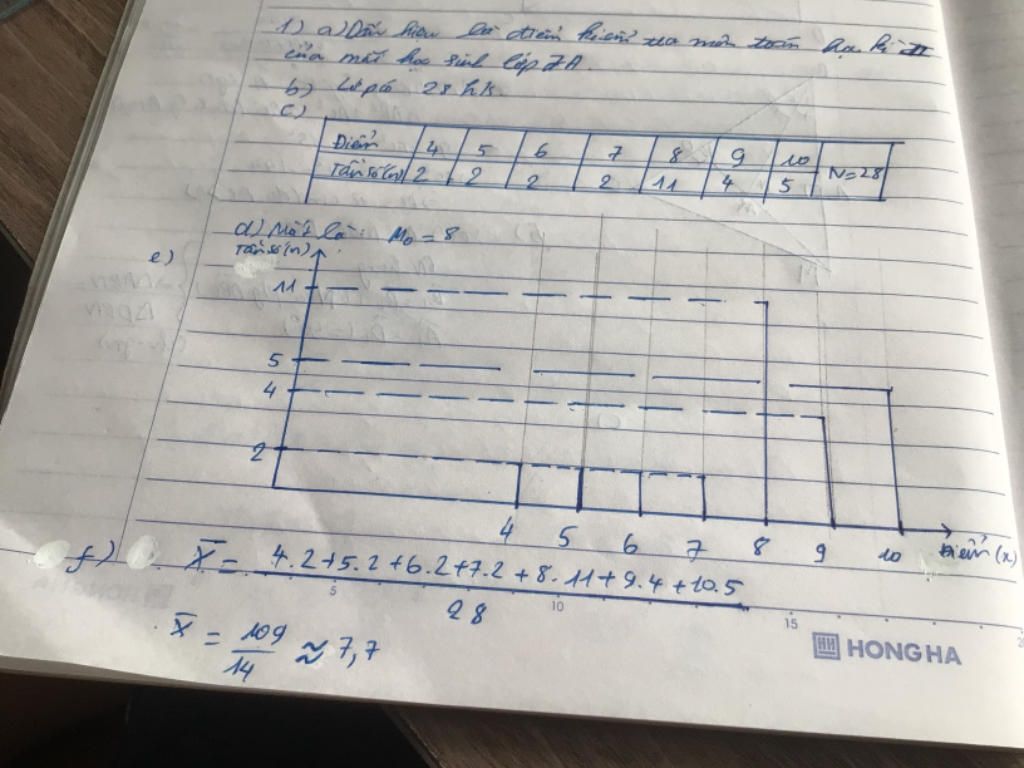 1) a) Dấu hiệu là điểm kiểm tra môn toán học kì II
của mỗi học sinh lớp 7A.
b) Lớp có 28 hs
c)
Điểm 4 5 6 7 8 9 10 N=28
Tần số(n) 2 2 2 2 11 4 5
d) Mốt là: M₀ = 8
e)
Tần số(n)
11
5
4
2
4 5 6 7 8 9 10 Điểm (x)
f) X̄ = 4.2+5.2+6.2+7.2+8.11+9.4+10.5
28
5 10 15
X̄ = 109/14 ≈ 7,7
HH HONG HA